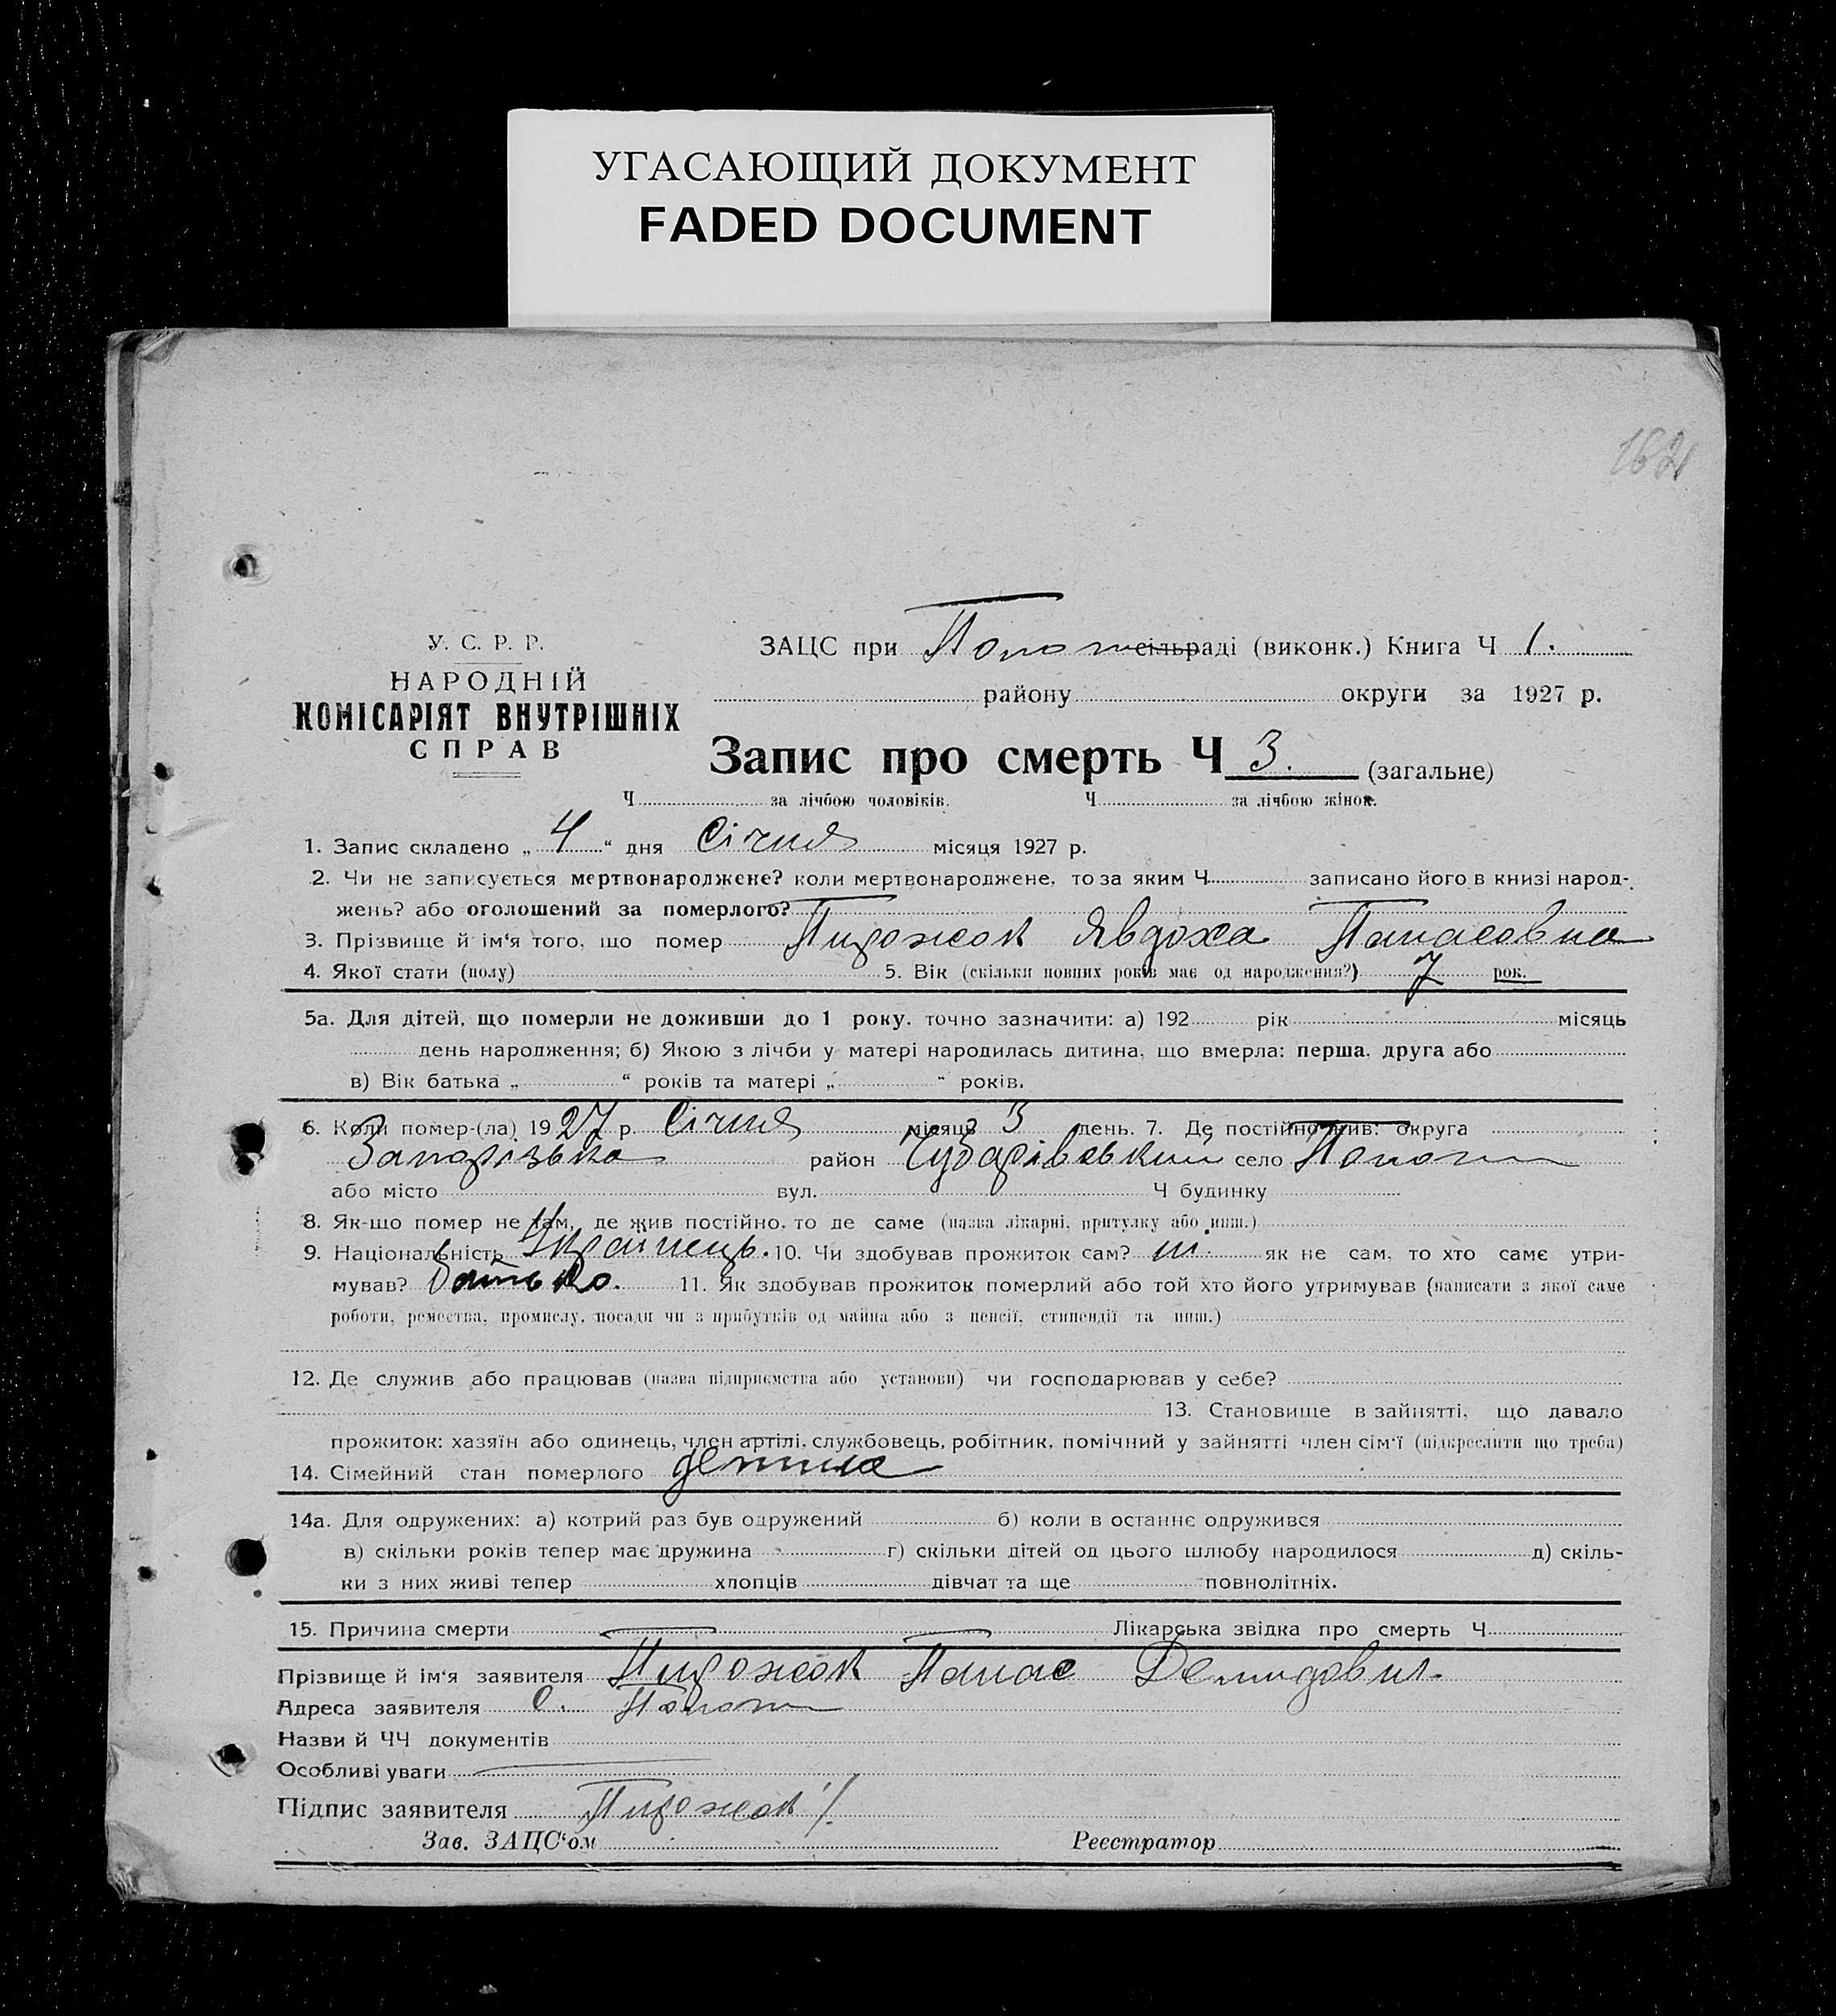 УГАСАЮЩИЙ ДОКУМЕНТ
FADED DOCUMENT
162
У. С. Р. Р.
НАРОДНІЙ
КОМІСАРІЯТ ВНУТРІШНІХ
СПРАВ
ЗАЦС при сільраді (виконк.) Книга Ч 1.
району округи за 1927 р.
Запис про смерть Ч 3. (загальне)
Ч за лічбою чоловіків. Ч за лічбою жінок.
1. Запис складено „ 4 “ дня Січня місяця 1927 р.
2. Чи не записується мертвонароджене? коли мертвонароджене, то за яким Ч записано його в книзі народ-
жень? або оголошений за померлого?
3. Прізвище й ім‘я того, що помер Пирожок Явдоха Панасовна
4. Якої стати (полу) 5. Вік (скільки повних років має од народження?) 7 рок.
5а. Для дітей, що померли не доживши до 1 року, точно зазначити: а) 192 рік місяць
день народження; б) Якою з лічби у матері народилась дитина, що вмерла: перша, друга або
в) Вік батька „ “ років та матері „ “ років.
6. Коли помер-(ла) 1927 р. Січня місяць 3 день. 7. Де постійно жив: округа
Запорізька район Чубарівський село
або місто вул. Ч будинку
8. Як-що помер не там, де жив постійно, то де саме (назва лікарні, притулку або инш.)
9. Національність Україпець. 10. Чи здобував прожиток сам? ні. як не сам, то хто саме утри-
мував? батько. 11. Як здобував прожиток померлий або той хто його утримував (написати з якої саме
роботи, ремества, промислу, посади чи з прибутків од майна або з пенсії, стипендії та инш.)
12. Де служив або працював (назва підприємства або установи) чи господарював у себе?
13. Становище в зайнятті, що давало
прожиток: хазяїн або одинець, член артілі, службовець, робітник, помічний у зайнятті член сім‘ї (підкреслити що треба)
14. Сімейний стан померлого
14а. Для одружених: а) котрий раз був одружений б) коли в останнє одружився
в) скільки років тепер має дружина г) скільки дітей од цього шлюбу народилося д) скіль-
ки з них живі тепер хлопців дівчат та ще повнолітніх.
15. Причина смерти Лікарська звідка про смерть Ч
Прізвище й ім‘я заявителя Пирожок Панас Демидович
Адреса заявителя с.
Назви й ЧЧ документів
Особливі уваги
Підпис заявителя Пирожок
Зав. ЗАЦС‘ом Реєстратор